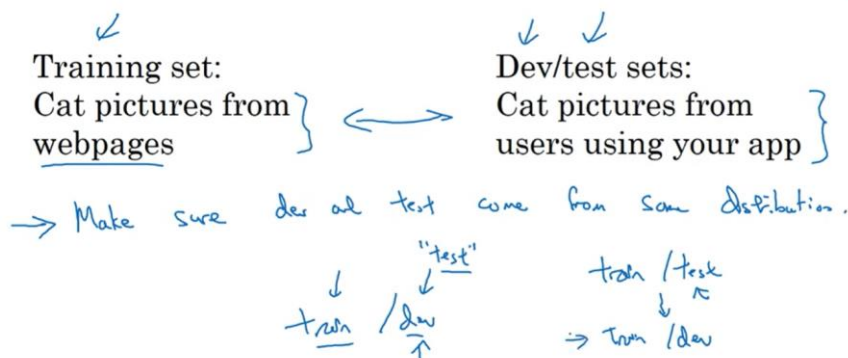 Training set:
Cat pictures from
webpages
Dev/test sets:
Cat pictures from
users using your app
→ Make sure dev and test come from same distribution.
"test"
train / dev
train / test
→ train / dev